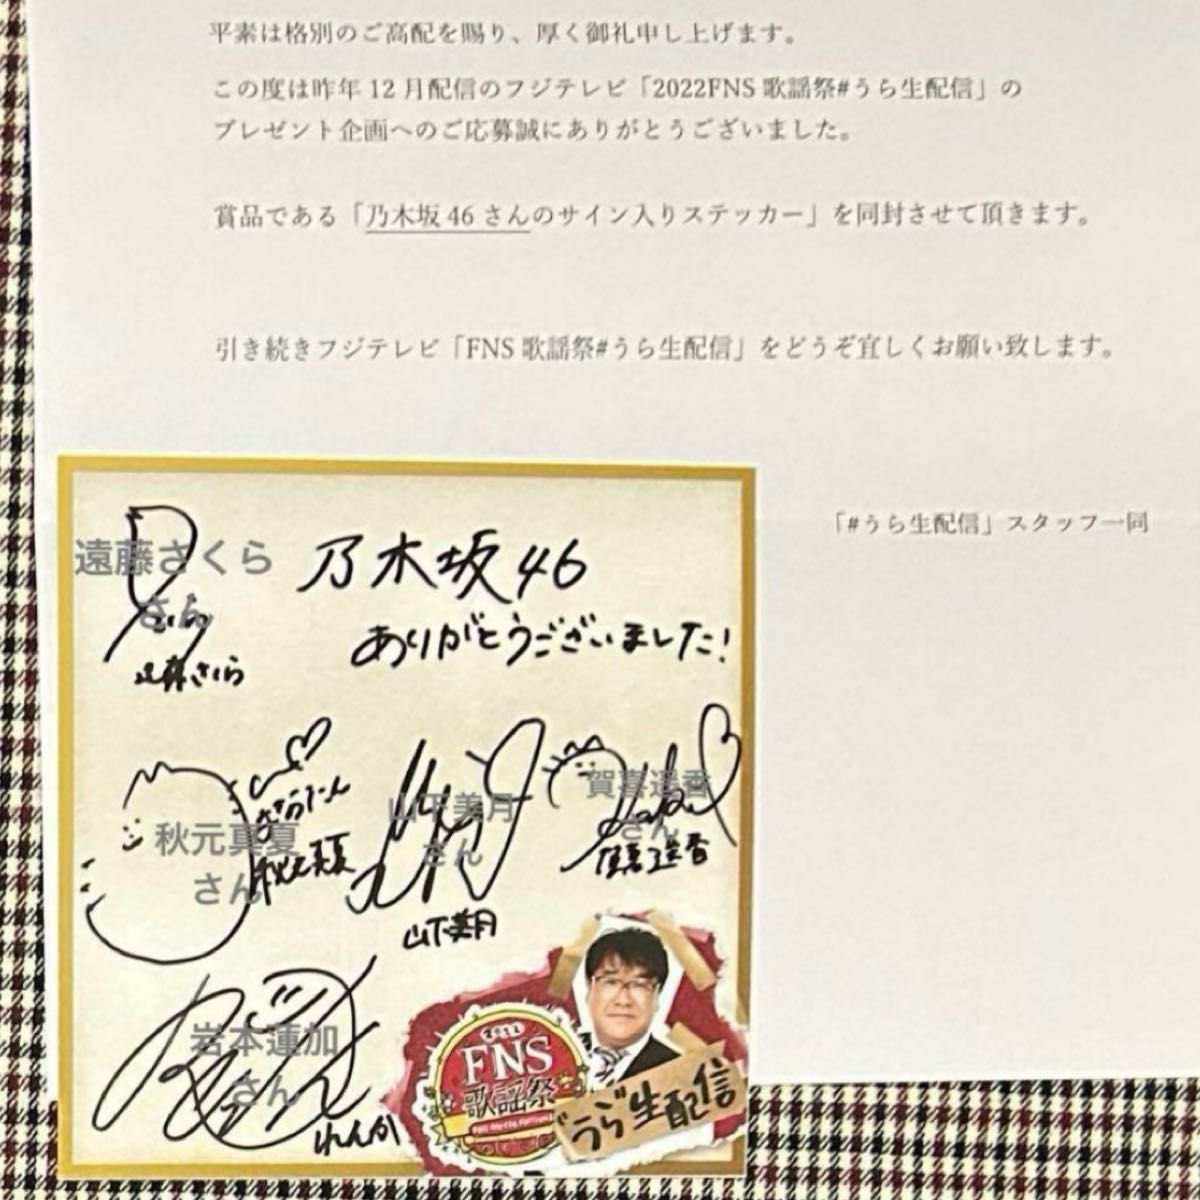 平素は格別のご高配を賜り、厚く御礼申し上げます。
この度は昨年 12 月配信のフジテレビ「2022FNS 歌謡祭#うら生配信」の
プレゼント企画へのご応募誠にありがとうございました。
賞品である「乃木坂 46 さんのサイン入りステッカー」を同封させて頂きます。
引き続きフジテレビ「FNS 歌謡祭#うら生配信」をどうぞ宜しくお願い致します。
「#うら生配信」スタッフ一同
乃木坂46
ありがとうございました!
遠藤さくら
さん
遠藤さくら
秋元真夏
さん
まなったん
秋元真夏
山下美月
さん
山下美月
賀喜遥香
さん
賀喜遥香
岩本蓮加
さん
れんか
FNS
歌謡祭
うら生配信